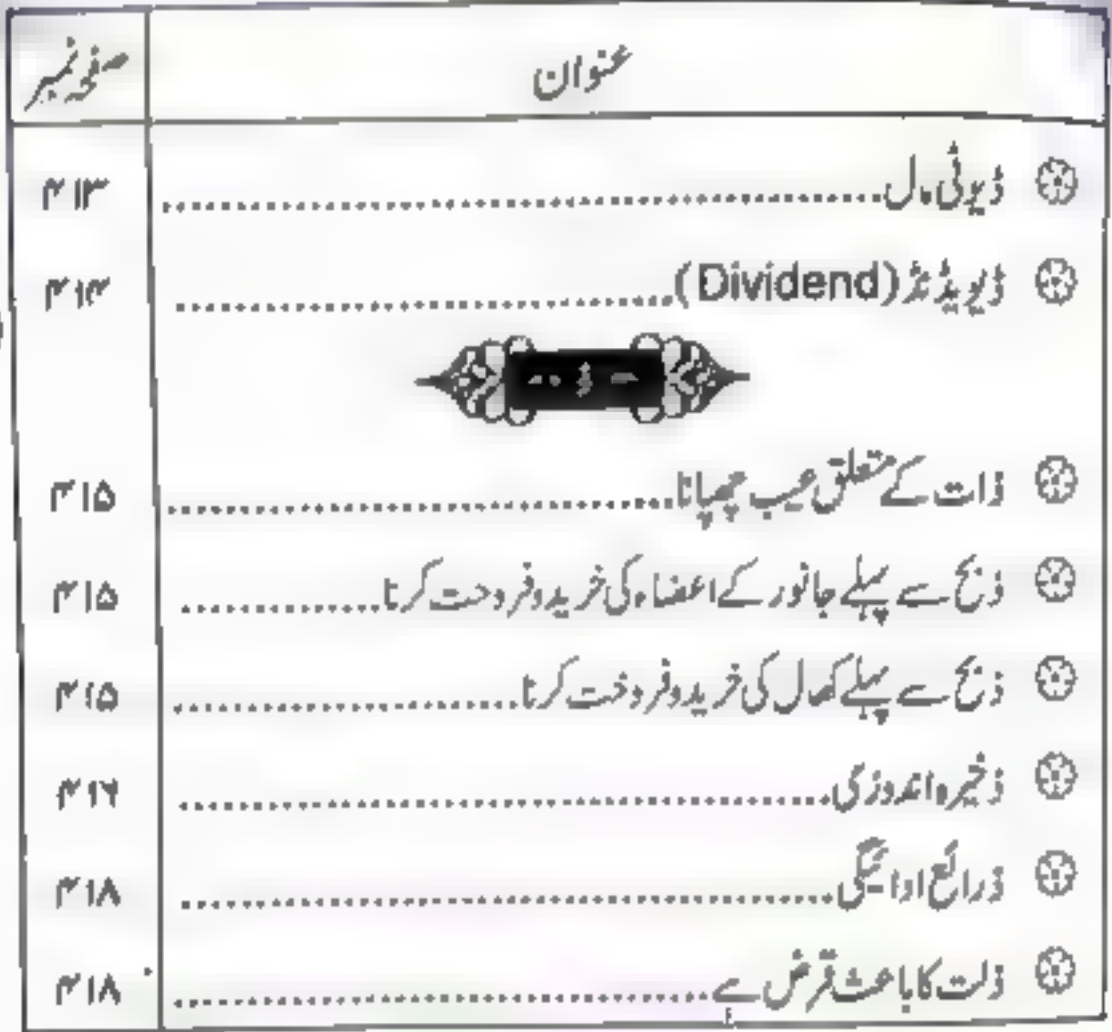 عنوان صفحہ نمبر
ڈیوٹی مل ۴۱۳
ڈیویڈنڈ (Dividend) ۴۱۳
-- ذ --
ذات کے متعلق عیب چھپانا ۴۱۵
ذبح سے پہلے جانور کے اعضاء کی خرید و فروخت کرنا ۴۱۵
ذبح سے پہلے کھال کی خرید و فروخت کرنا ۴۱۵
ذخیرہ اندوزی ۴۱۶
ذرائع ادائیگی ۴۱۸
ذلت کا باعث قرض ہے ۴۱۸